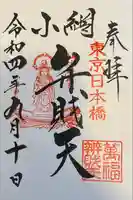 奉拝
東京日本橋
小網
弁財天
萬福
舞財
令和四年九月十日